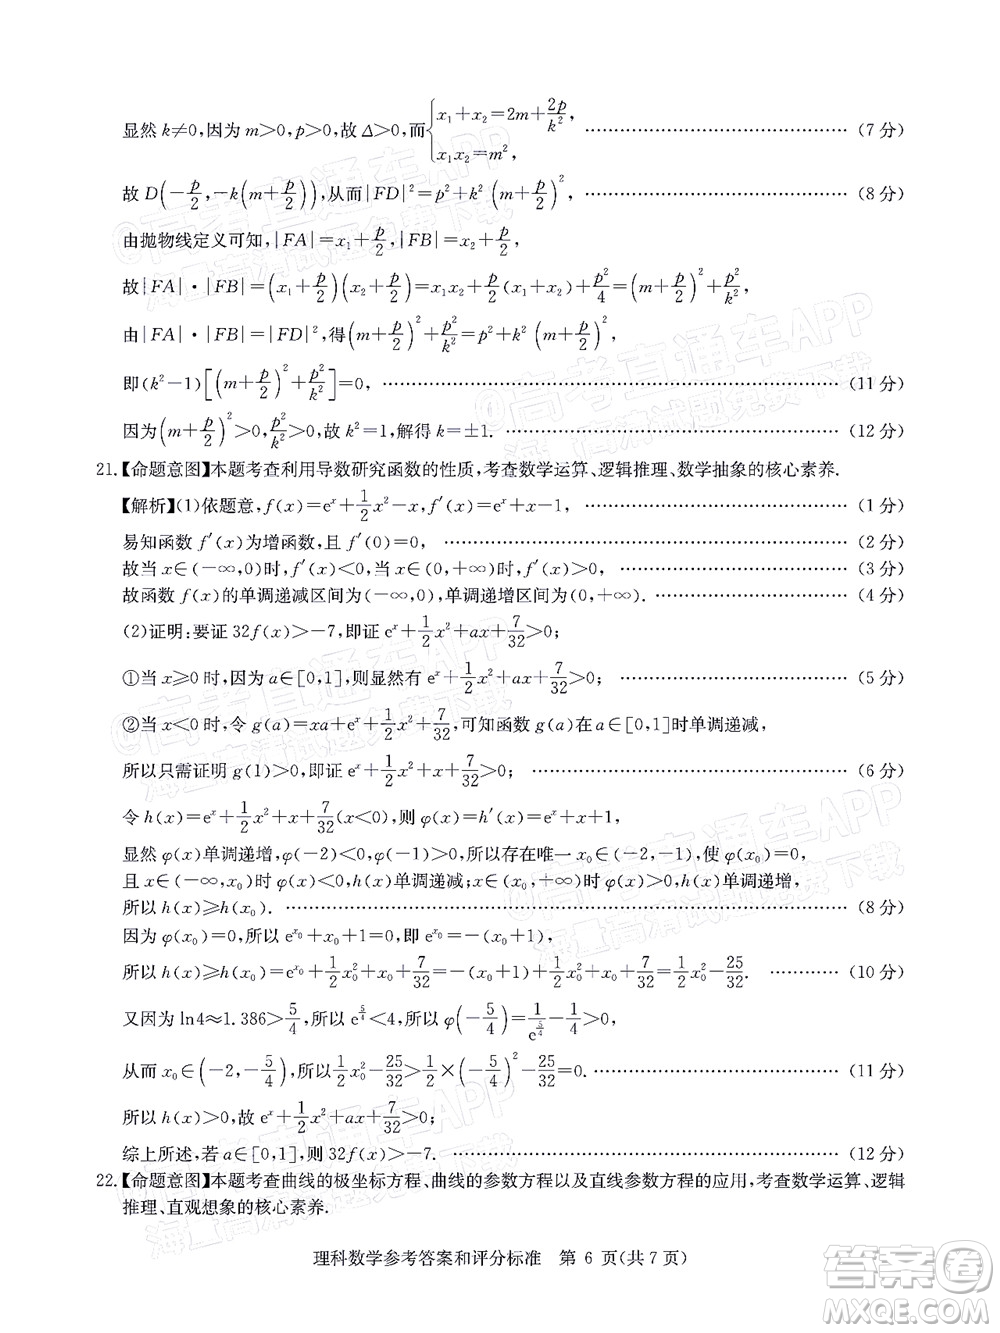 显然 k≠0,因为 m>0,p>0,故 Δ>0,而{x₁+x₂=2m+2p/k², x₁x₂=m², ……(7 分)
故 D(-p/2,-k(m+p/2)),从而|FD|²=p²+k²(m+p/2)², ……(8 分)
由抛物线定义可知,|FA|=x₁+p/2,|FB|=x₂+p/2,
故|FA|·|FB|=(x₁+p/2)(x₂+p/2)=x₁x₂+p/2(x₁+x₂)+p²/4=(m+p/2)²+p²/k²,
由|FA|·|FB|=|FD|²,得(m+p/2)²+p²/k²=p²+k²(m+p/2)²,
即(k²-1)[(m+p/2)²+p²/k²]=0, ……(11 分)
因为(m+p/2)²>0,p²/k²>0,故 k²=1,解得 k=±1. ……(12 分)
21.【命题意图】本题考查利用导数研究函数的性质,考查数学运算、逻辑推理、数学抽象的核心素养.
【解析】(1)依题意,f(x)=eˣ+1/2x²-x,f′(x)=eˣ+x-1, ……(1 分)
易知函数 f′(x)为增函数,且 f′(0)=0, ……(2 分)
故当 x∈(-∞,0)时,f′(x)<0,当 x∈(0,+∞)时,f′(x)>0, ……(3 分)
故函数 f(x)的单调递减区间为(-∞,0),单调递增区间为(0,+∞). ……(4 分)
(2)证明:要证 32f(x)>-7,即证 eˣ+1/2x²+ax+7/32>0;
①当 x≥0 时,因为 a∈[0,1],则显然有 eˣ+1/2x²+ax+7/32>0; ……(5 分)
②当 x<0 时,令 g(a)=xa+eˣ+1/2x²+7/32,可知函数 g(a)在 a∈[0,1]时单调递减,
所以只需证明 g(1)>0,即证 eˣ+1/2x²+x+7/32>0; ……(6 分)
令 h(x)=eˣ+1/2x²+x+7/32(x<0),则 φ(x)=h′(x)=eˣ+x+1,
显然 φ(x)单调递增,φ(-2)<0,φ(-1)>0,所以存在唯一 x₀∈(-2,-1),使 φ(x₀)=0,
且 x∈(-∞,x₀)时 φ(x)<0,h(x)单调递减;x∈(x₀,0)时 φ(x)>0,h(x)单调递增,
所以 h(x)≥h(x₀). ……(8 分)
因为 φ(x₀)=0,所以 e^x₀+x₀+1=0,即 e^x₀=-x₀-1,
所以 h(x)≥h(x₀)=e^x₀+1/2x₀²+x₀+7/32=-(x₀+1)+1/2x₀²+x₀+7/32=1/2x₀²-25/32. ……(10 分)
又因为 ln4≈1.386>5/4,所以 e^(5/4)<4,所以 φ(-5/4)=1/e^(5/4)-1/4>0,
从而 x₀∈(-2,-5/4),所以1/2x₀²-25/32>1/2×(-5/4)²-25/32=0. ……(11 分)
所以 h(x)>0,故 eˣ+1/2x²+ax+7/32>0;
综上所述,若 a∈[0,1],则 32f(x)>-7. ……(12 分)
22.【命题意图】本题考查曲线的极坐标方程、曲线的参数方程以及直线参数方程的应用,考查数学运算、逻辑
推理、直观想象的核心素养.
理科数学参考答案和评分标准 第 6 页(共 7 页)
答案圈
MXQE.COM
@高考直通车APP
海量高清试题免费下载